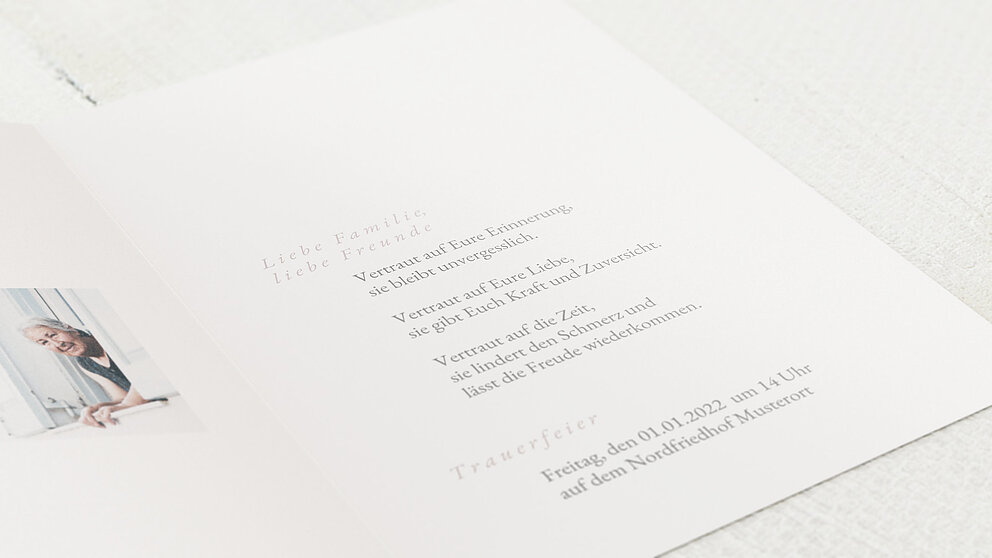 Liebe Familie,
liebe Freunde
Vertraut auf Eure Erinnerung,
sie bleibt unvergesslich.
Vertraut auf Eure Liebe,
sie gibt Euch Kraft und Zuversicht.
Vertraut auf die Zeit,
sie lindert den Schmerz und
lässt die Freude wiederkommen.
Trauerfeier
Freitag, den 01.01.2022 um 14 Uhr
auf dem Nordfriedhof Musterort